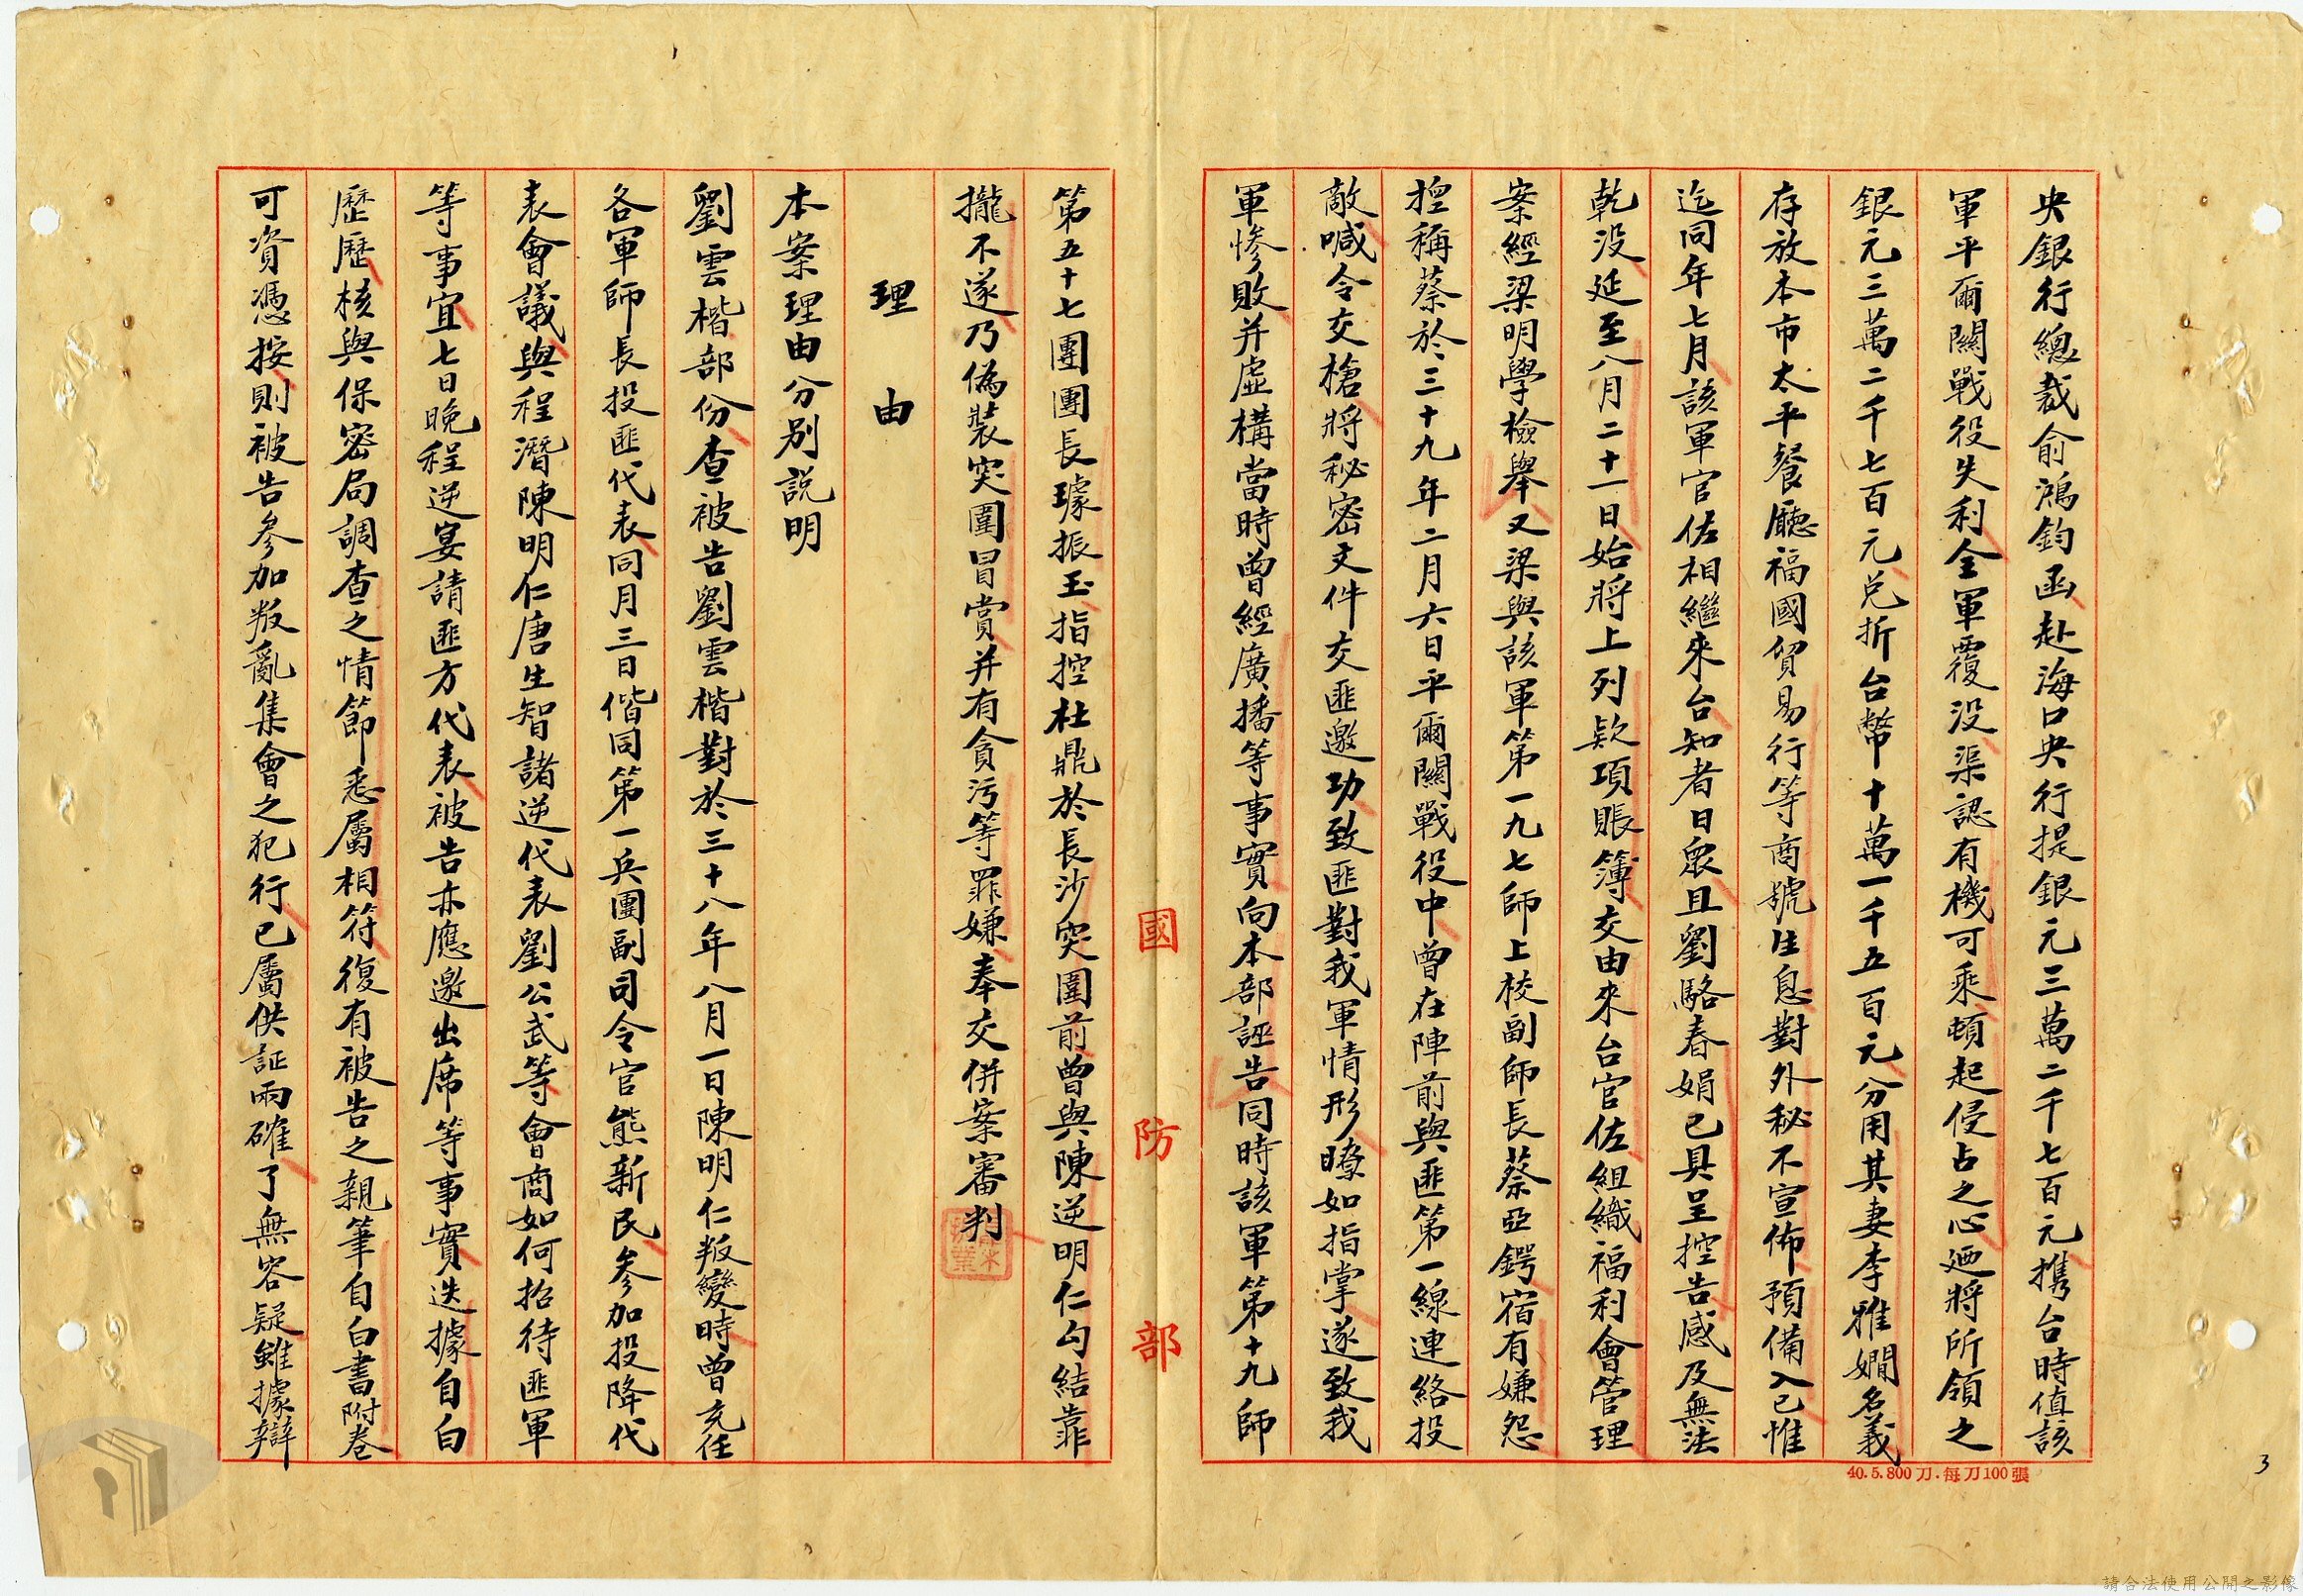 央銀行總裁俞鴻鈞函赴海口央行提銀元三萬二千七百元携台時值該
軍平爾關戰役失利全軍覆没渠認有機可乘頓起侵占之心廼將所領之
銀元三萬二千七百元兑折台幣十萬一千五百元分用其妻李雅嫻名義
存放本市太平餐廳福國貿易行等商號生息對外秘不宣佈預備入己惟
迄同年七月該軍官佐相繼來台知者日衆且劉駱春娟已具呈控告感及無法
乾没延至八月二十一日始將上列欵項賬簿交由來台官佐組織福利會管理
案經梁明學檢舉又梁與該軍第一九七師上校副師長蔡亞鍔宿有嫌怨
揑稱蔡於三十九年二月六日平爾關戰役中曾在陣前與匪第一線連絡投
敵喊令交槍將秘密文件交匪邀功致匪對我軍情形瞭如指掌遂致我
軍慘敗并虛構當時曾經廣播等事實向本部誣告同時該軍第十九師
國防部
第五十七團團長璩振玉指控杜鼎於長沙突圍前曾與陳逆明仁勾結靠
攏不遂乃偽裝突圍冒賞并有貪污等罪嫌奉交併案審判
理由
本案理由分別説明
劉雲楷部份查被告劉雲楷對於三十八年八月一日陳明仁叛變時曾充任
各軍師長投匪代表同月三日偕同第一兵團副司令官熊新民参加投降代
表會議與程潛陳明仁唐生智諸逆代表劉公武等會商如何招待匪軍
等事宜七日晚程逆宴請匪方代表被告亦應邀出席等事實迭據自白
歷歷核與保密局調查之情節悉屬相符復有被告之親筆自白書附卷
可資憑按則被告参加叛亂集會之犯行已屬供証兩確了無容疑雖據辯
40.5.800刀.每刀100張
3
請合法使用公開之影像